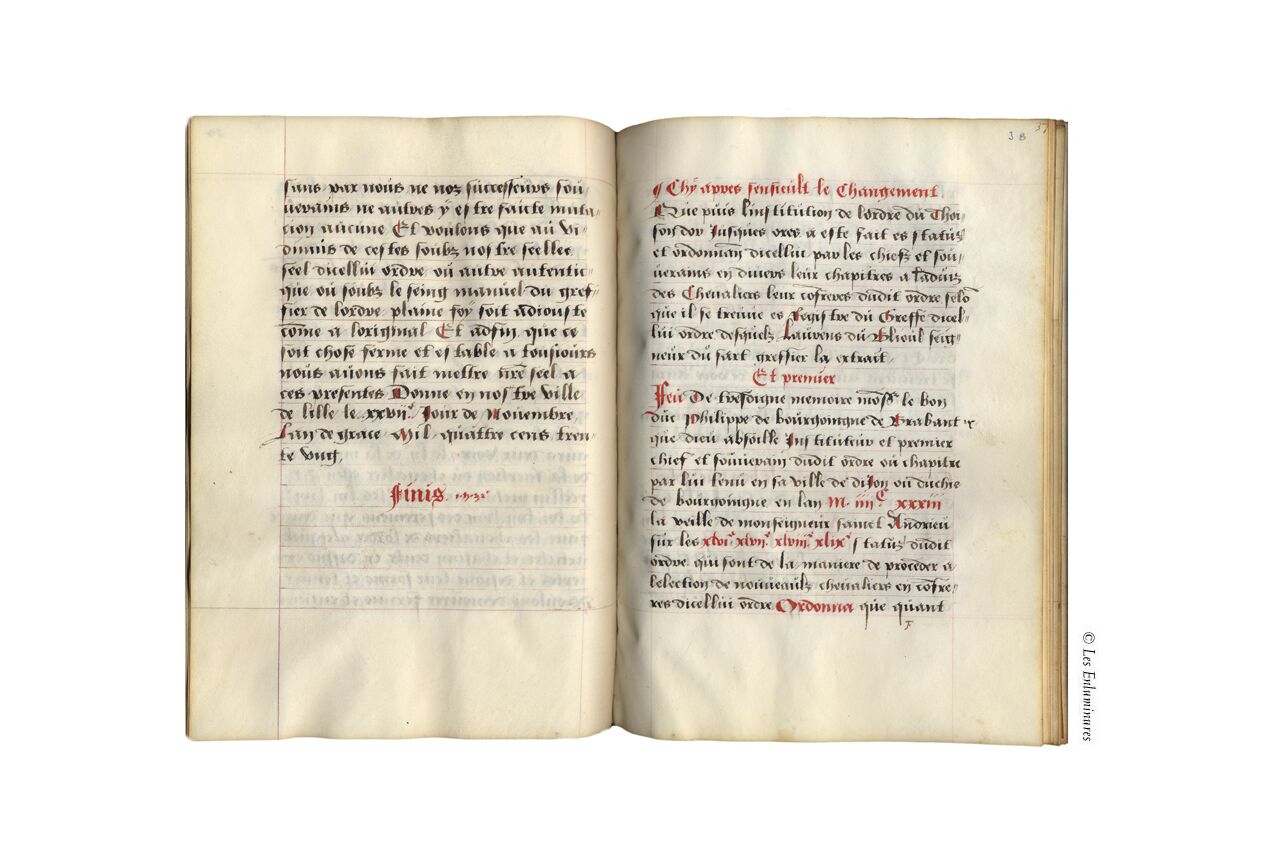 sans par nous ne noz successeurs sou
uerains ne autres y estre faicte muta
cion aucune Et voulons que au vi
dimus de cestes soubz nostre seelle
seel dicellui ordre ou autre autentic
que ou soubz le seing manuel du gref
fier de lordre plaine foy soit adiouste
cōme a loriginal Et adfin que ce
soit chose ferme et estable a tousiours
nous auons fait mettre nrē seel a
ces presentes Donne en nostre ville
de lille le xxvii.e Jour de Nouembre
Lan de grace Mil quattre cens tren
te vng
Finis
38
37
¶ Chy apres sensieult le Changement
Que puis linstitution de lordre du Thoi
son dor Jusques ores a este fait es statuz
et ordonnan dicellui par les chiefz et sou
uerains en diuers leur chapitres a laduiz
des Cheualiers leur cōfreres dudit ordre selō
que il se treuue es Registre du Greffe dicel
lui ordre desquelz Laurens du Blioul seig
neur du sart greffier la extrait
Et premier
Feu De tresdigne memoire monsr le bon
duc Philippe de bourgoingne de Brabant
que dieu absoille Instituteur et premier
chief et souuerain dudit ordre ou chapitre
par lui tenu en sa ville de diJon ou duchie
de bourgoingne en lan M. iiii.C xxxiii
la veille de monseigneur sainct Andrieu
sur les xlvi.e xlvii.e xlviii.e xlix.e statuz dudit
ordre qui sont de la maniere de proceder a
lelection de nouueaulx cheualiers en cōfre
res dicellui ordre Ordonna que quant
F
© Les Enluminures